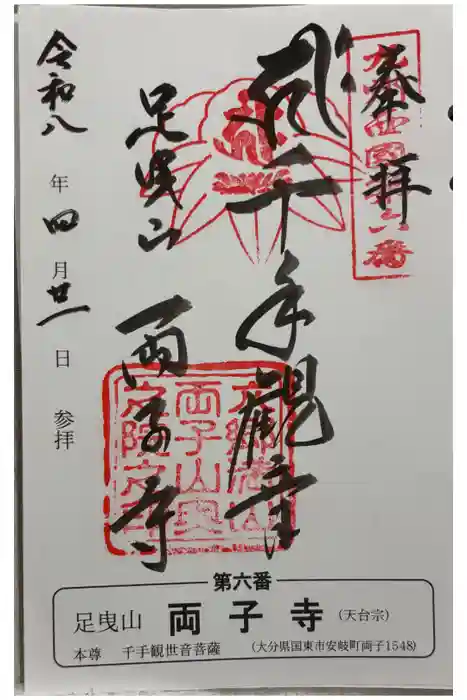 奉拝
九州西国第六番
千手觀音
六郷満山
両子山奥
足曳山 両子寺
令和八年四月廿一日 参拝
第六番
足曳山 両子寺 (天台宗)
本尊 千手観世音菩薩 (大分県国東市安岐町両子1548)